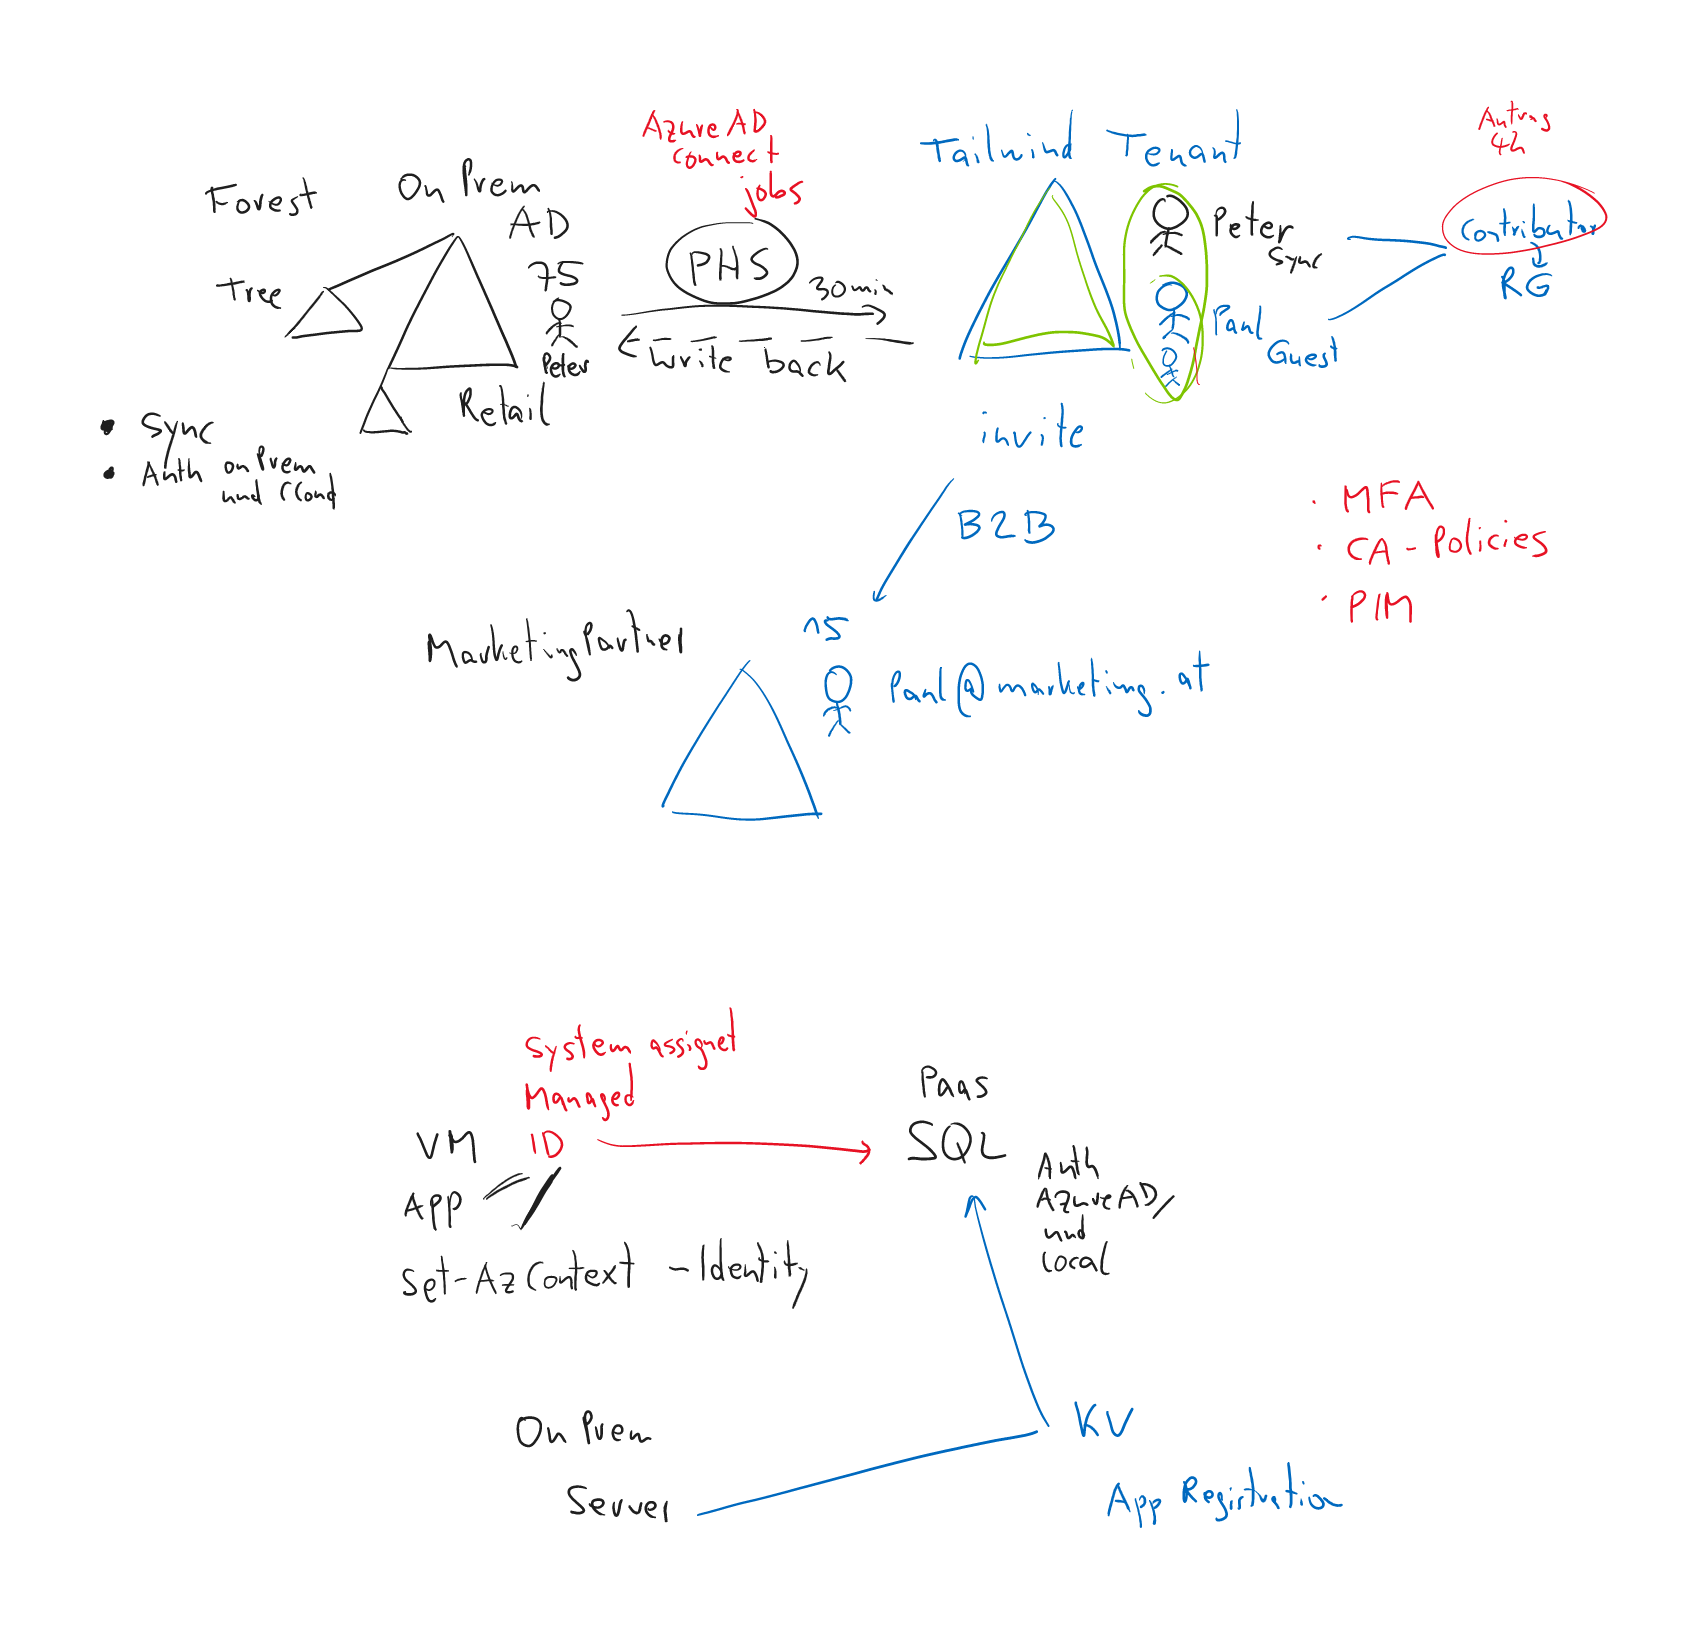 Forest
On Prem
AD
Tree
75
Peter
Retail
• Sync
• Auth on Prem
und Cloud
Azure AD
connect
jobs
PHS
30min
write back
Tailwind Tenant
Peter
Sync
Paul
Guest
Antrag
4h
Contributor
RG
invite
B2B
• MFA
• CA - Policies
• PIM
MarketingPartner
15
Paul@marketing.at
System assignet
Managed
VM ID
App
Set-AzContext -Identity
Paas
SQL
Auth
AzureAD,
und
local
On Prem
Server
KV
App Registration